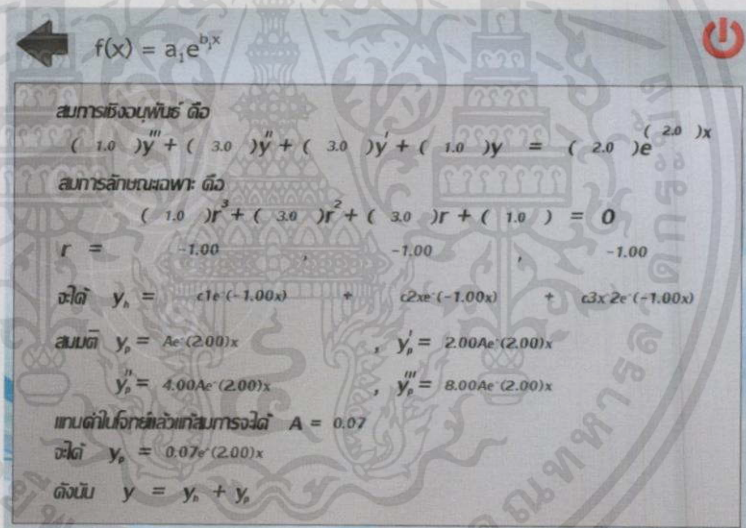 f(x) = aⱼe^bⱼx
สมการเชิงอนุพันธ์ คือ
( 1.0 )y''' + ( 3.0 )y'' + ( 3.0 )y' + ( 1.0 )y = ( 2.0 )e^( 2.0 )x
สมการลักษณะเฉพาะ คือ
( 1.0 )r³ + ( 3.0 )r² + ( 3.0 )r + ( 1.0 ) = 0
r = -1.00 , -1.00 , -1.00
จะได้ yₕ = c1e^(-1.00x) + c2xe^(-1.00x) + c3x^2e^(-1.00x)
สมมติ yₚ = Ae^(2.00)x , yₚ' = 2.00Ae^(2.00)x
yₚ'' = 4.00Ae^(2.00)x , yₚ''' = 8.00Ae^(2.00)x
แทนค่าในโจทย์แล้วแก้สมการจะได้ A = 0.07
จะได้ yₚ = 0.07e^(2.00)x
ดังนั้น y = yₕ + yₚ